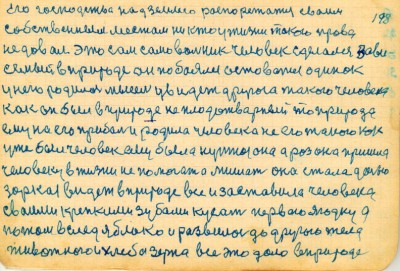 его господства над землею распоретати своим 198
собственным местам ни кто у жизни такого права
не довал это сам самовольник человек сделался завы
семый в природе он побоялся остоватся одинок
у него родилась мысель увидеть другога такого человека
как он был в природе не плодотварный то природа
ему на его прибаки родила человека не его такого как
уже был человек ему была нужна она а раз она пришла
человеку в жизни не помогата а мишать она стала должно
зорка увидет в природе все и заставила человека
своими крепкими зубами кусат перваю ягодку а
потом вслед яблако и развилось до другога тела
животнога и хлеба зерта все это дало в природе